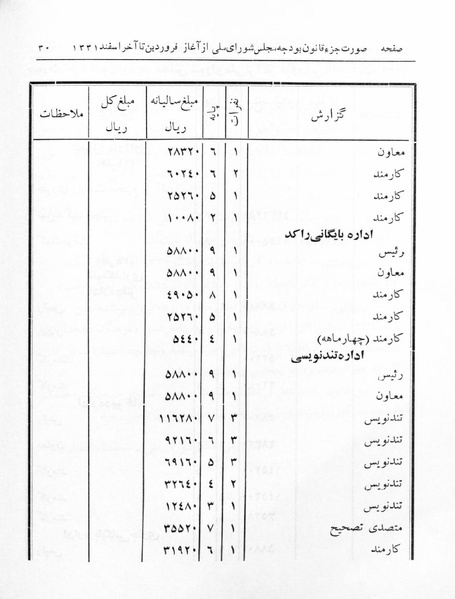 صفحه صورت جزء قانون بودجه مجلس شورای ملی از آغاز فروردین تا آخر اسفند ۱۳۳۱ ۳۰
گزارش نفرات پایه مبلغ سالیانه ریال مبلغ کل ریال ملاحظات
معاون ۱ ۶ ۲۸۳۲۰
کارمند ۲ ۶ ۶۰۲۴۰
کارمند ۱ ۵ ۲۵۲۶۰
کارمند ۱ ۲ ۱۰۰۸۰
اداره بایگانی راکد
رئیس ۱ ۹ ۵۸۸۰۰
معاون ۱ ۹ ۵۸۸۰۰
کارمند ۱ ۸ ۴۹۰۵۰
کارمند ۱ ۵ ۲۵۲۶۰
کارمند (چهارماهه) ۱ ۴ ۵۴۴۰
اداره تندنویسی
رئیس ۱ ۹ ۵۸۸۰۰
معاون ۱ ۹ ۵۸۸۰۰
تندنویس ۳ ۷ ۱۱۶۲۸۰
تندنویس ۳ ۶ ۹۲۱۶۰
تندنویس ۳ ۵ ۶۹۱۶۰
تندنویس ۲ ۴ ۳۲۶۴۰
تندنویس ۱ ۳ ۱۲۴۸۰
متصدی تصحیح ۱ ۷ ۳۵۵۲۰
کارمند ۱ ۶ ۳۱۹۲۰